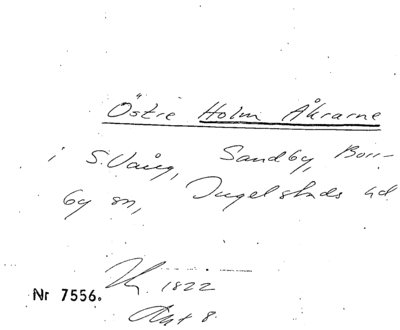 Östre Holm Åkrarne
i S. Vång, Sandby, Borr-
by sn, Ingelstads hd
1822
Nr 7556.
Akt 8.